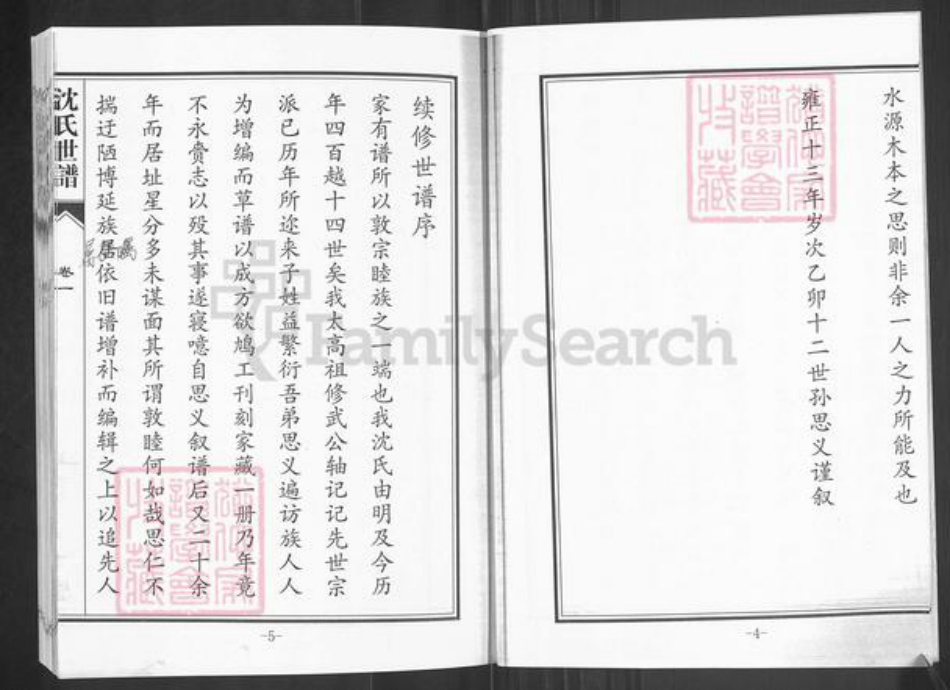 水源木本之思则非余一人之力所能及也
雍正十三年岁次乙卯十二世孙思义谨叙
-4-
续修世谱序
家有谱所以敦宗睦族之一端也我沈氏由明及今历
年四百越十四世矣我太高祖修武公轴记记先世宗
派已历年所迩来子姓益繁衍吾弟思义遍访族人人
为增编而草谱以成方欲鸠工刊刻家藏一册乃年竟
不永赍志以殁其事遂寝噫自思义叙谱后又二十余
年而居址星分多未谋面其所谓敦睦何如哉思仁不
揣迂陋博延族居依旧谱增补而编辑之上以追先人
沈氏世譜
卷一
-5-
FamilySearch
譜學會
收藏
譜學會
收藏